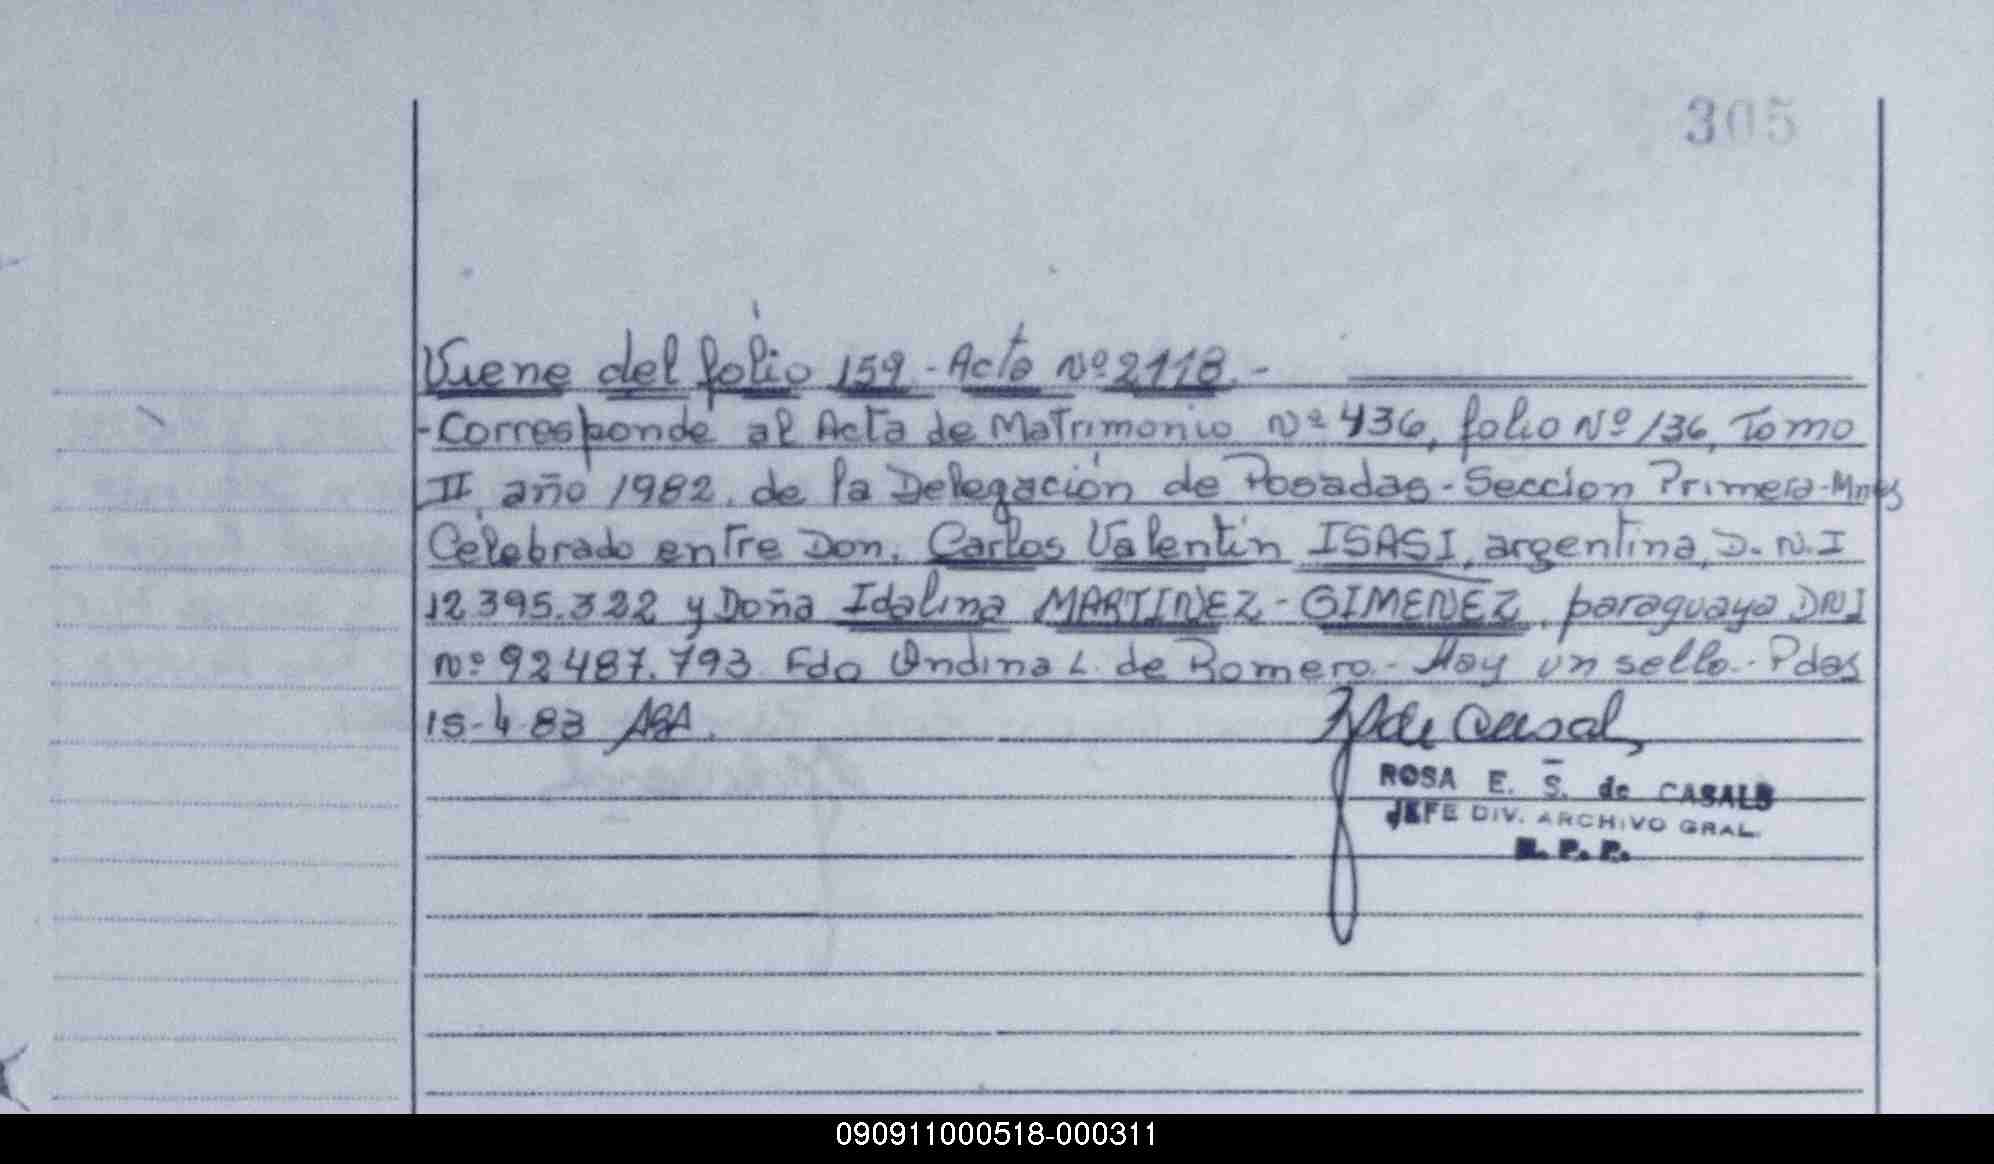 305
Viene del folio 159 - Acta Nº 2118 -
- Corresponde al Acta de Matrimonio Nº 436, folio Nº 136, Tomo
II año 1982, de la Delegación de Posadas - Seccion Primera - Mnes
Celebrado entre Don. Carlos Valentin ISASI, argentina, D.N.I
12.395.322 y Doña Idalina MARTINEZ - GIMENEZ, paraguaya DNI
Nº 92487.793 Fdo Ondina L. de Romero - Hay un sello - Pdas
15-4-83
de Casal
ROSA E. S. de CASALS
JEFE DIV. ARCHIVO GRAL.
R. P. P.
090911000518-000311